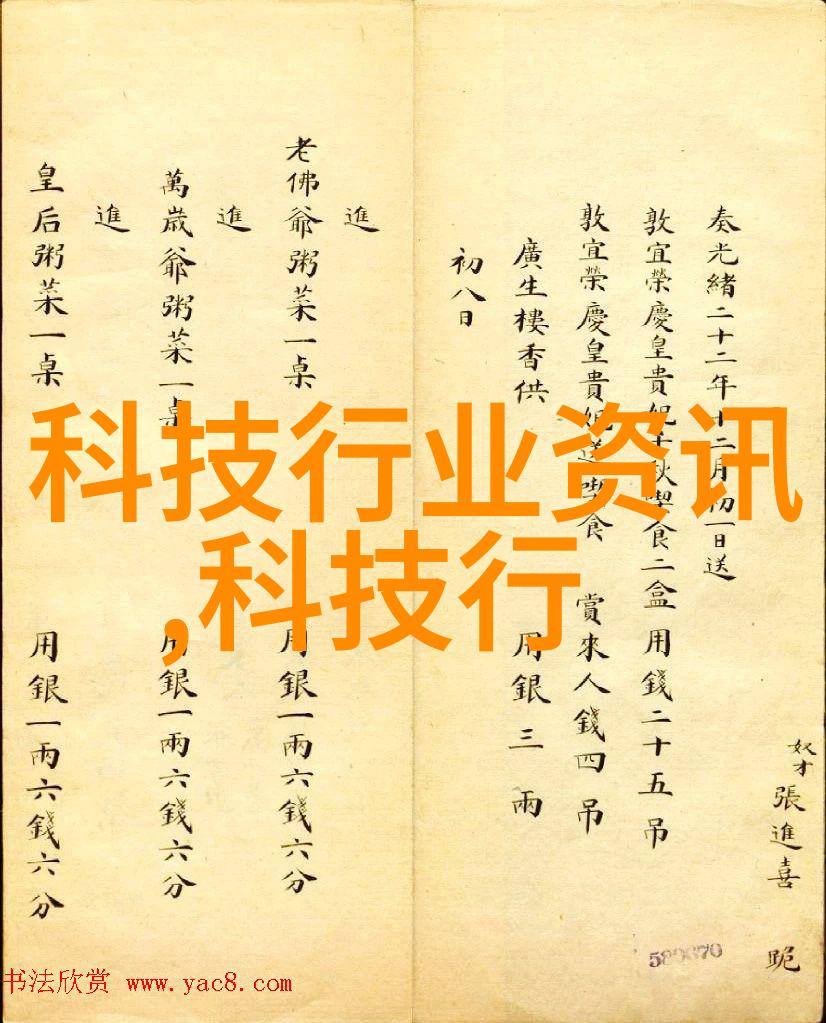 奴才張進喜 跪
奏光緒二十二年十二月初一日送
敦宜榮慶皇貴妃千秋喫食二盒用錢二十五吊
敦宜榮慶皇貴妃送喫食 賞來人錢四吊
廣生樓香供 用銀三兩
初八日
進
老佛爺粥菜一桌 用銀一兩六錢六分
進
萬歲爺粥菜一桌 用銀一兩六錢六分
進
皇后粥菜一桌 用銀一兩六錢六分
科技行业资讯
,科技行
书法欣赏 www.yac8.com